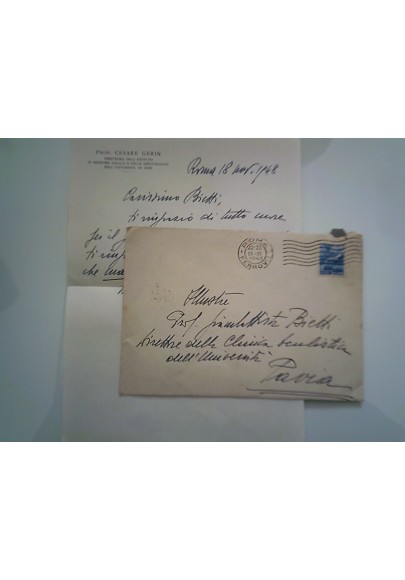 PROF. CESARE GERIN
DIRETTORE DELL'ISTITUTO
DI MEDICINA LEGALE E DELLE ASSICURAZIONI
DELL'UNIVERSITÀ DI
Roma 18 nov. 1948
Carissimo Bietti,
ti ringrazio di tutto cuore
per il
ti
che
ROMA
FERROVIA
Illustre
Prof. Giambattista Bietti
Direttore della Clinica Oculistica
dell'Università
Pavia